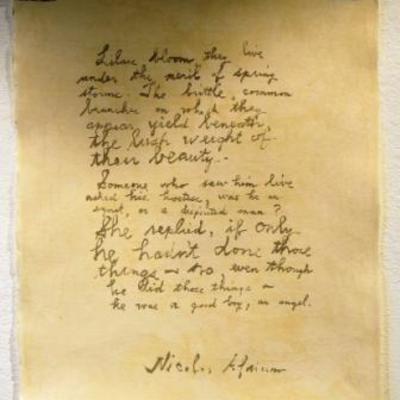 bloom, they live
under the merit of spring
storms. The brittle, common
branches on which they
appear, yield beneath,
the lush weight of
their beauty.
Someone who saw him live
asked his hostess, was he an
or a man?
She replied, if only
he hadn't done those
things so, even though
he did those things
he was a good boy, an angel.